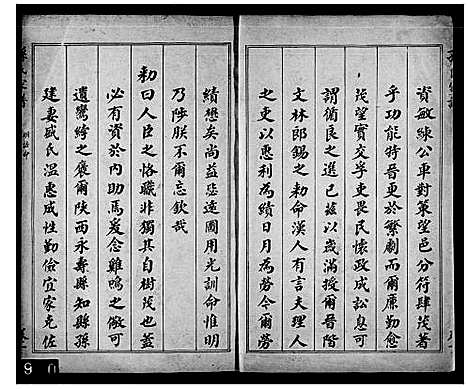 資敏練公車對策望邑分符肆茂著
乎功能特晉更於繁劇而爾廉勤愈
茂望實交孚吏畏民懷政成訟息可
謂循良之選已茲以歲滿授爾晉階
文林郎錫之勅命漢人有言夫理人
之吏以惠利為績日月為勞今爾勞
績懋矣尚益恢遠圖用光訓命惟明
乃陟朕不爾忘欽哉
勅曰人臣之恪職非獨其自樹茂也蓋
必有資於內助焉爰念雞鳴之儆可
遺鸞綍之褒爾陝西永壽縣知縣孫
建妻戚氏溫惠成性勤儉宜家克佐
9 0